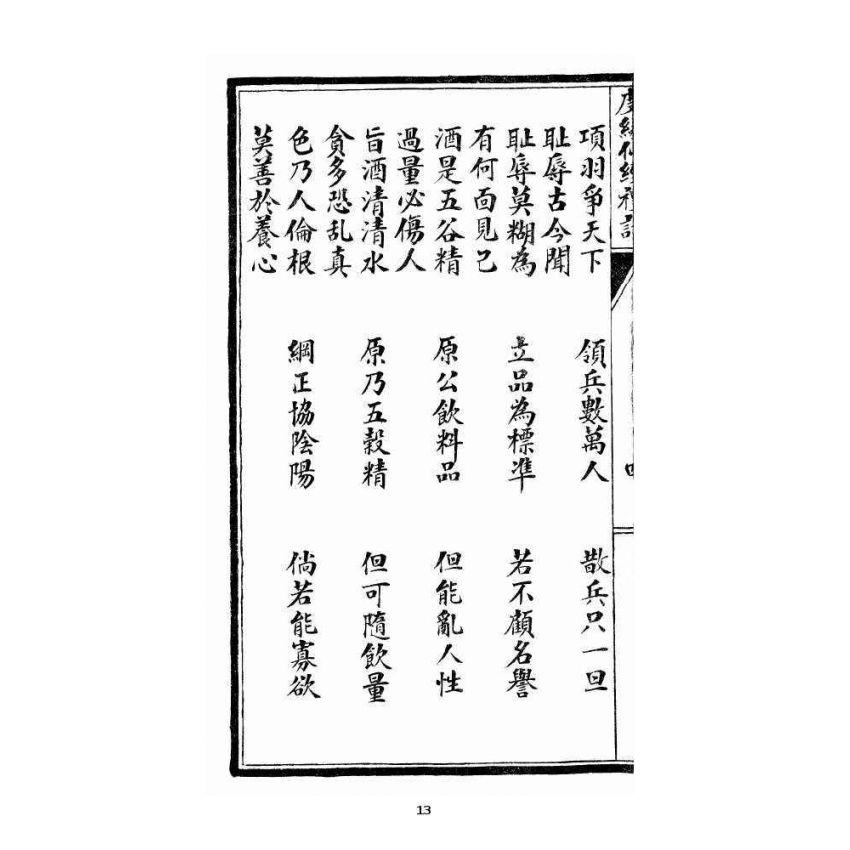 項羽爭天下 領兵數萬人 散兵只一旦
耻辱古今聞
耻辱莫糊為 立品為標準 若不顧名譽
有何面見己
酒是五谷精 原公飲料品 但能亂人性
過量必傷人
旨酒清清水 原乃五穀精 但可隨飲量
貪多恐乱真
色乃人倫根 綱正協陰陽 倘若能寡欲
莫善於養心
13